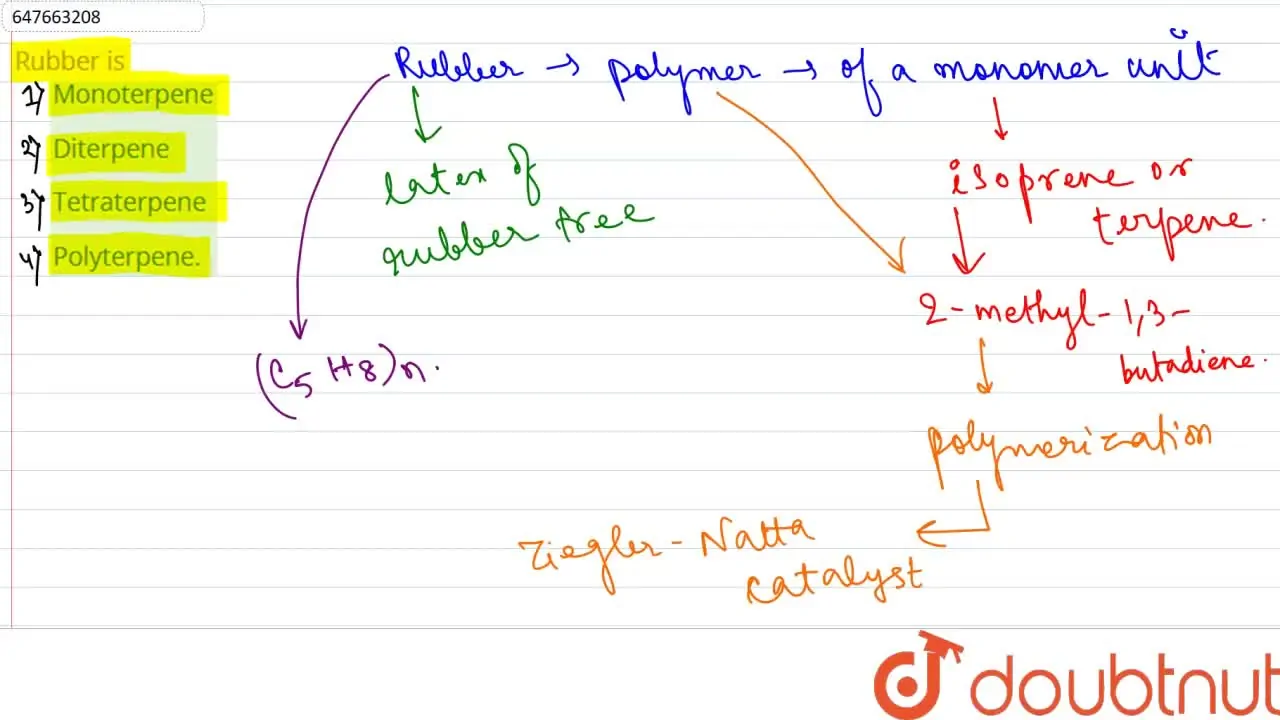 647663208
Rubber is
1) Monoterpene
2) Diterpene
3) Tetraterpene
4) Polyterpene.
Rubber → polymer → of a monomer unit
latex of
rubber tree
isoprene or
terpene.
2-methyl-1,3-
butadiene.
(C5H8)n.
polymerization
Ziegler-Natta
catalyst
doubtnut